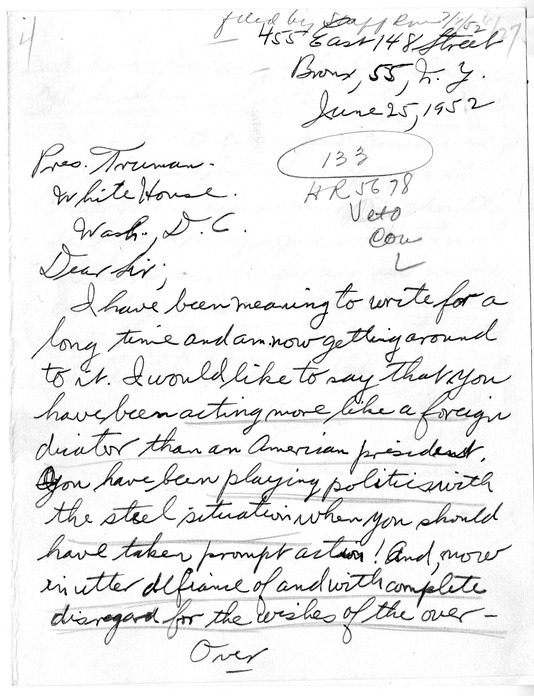 4
filed by Staff Rm 7/2/52
455 East 148 Street
Bronx, 55, N.Y.
June 25, 1952
133
HR 5678
Veto
Con
L
Pres. Truman.
White House.
Wash., D.C.
Dear Sir,
I have been meaning to write for a
long time and am now getting around
to it. I would like to say that you
have been acting more like a foreign
dicator than an American president.
You have been playing politics with
the steel situation when you should
have taken prompt action! And, now
in utter defiance of and with complete
disregard for the wishes of the over-
Over